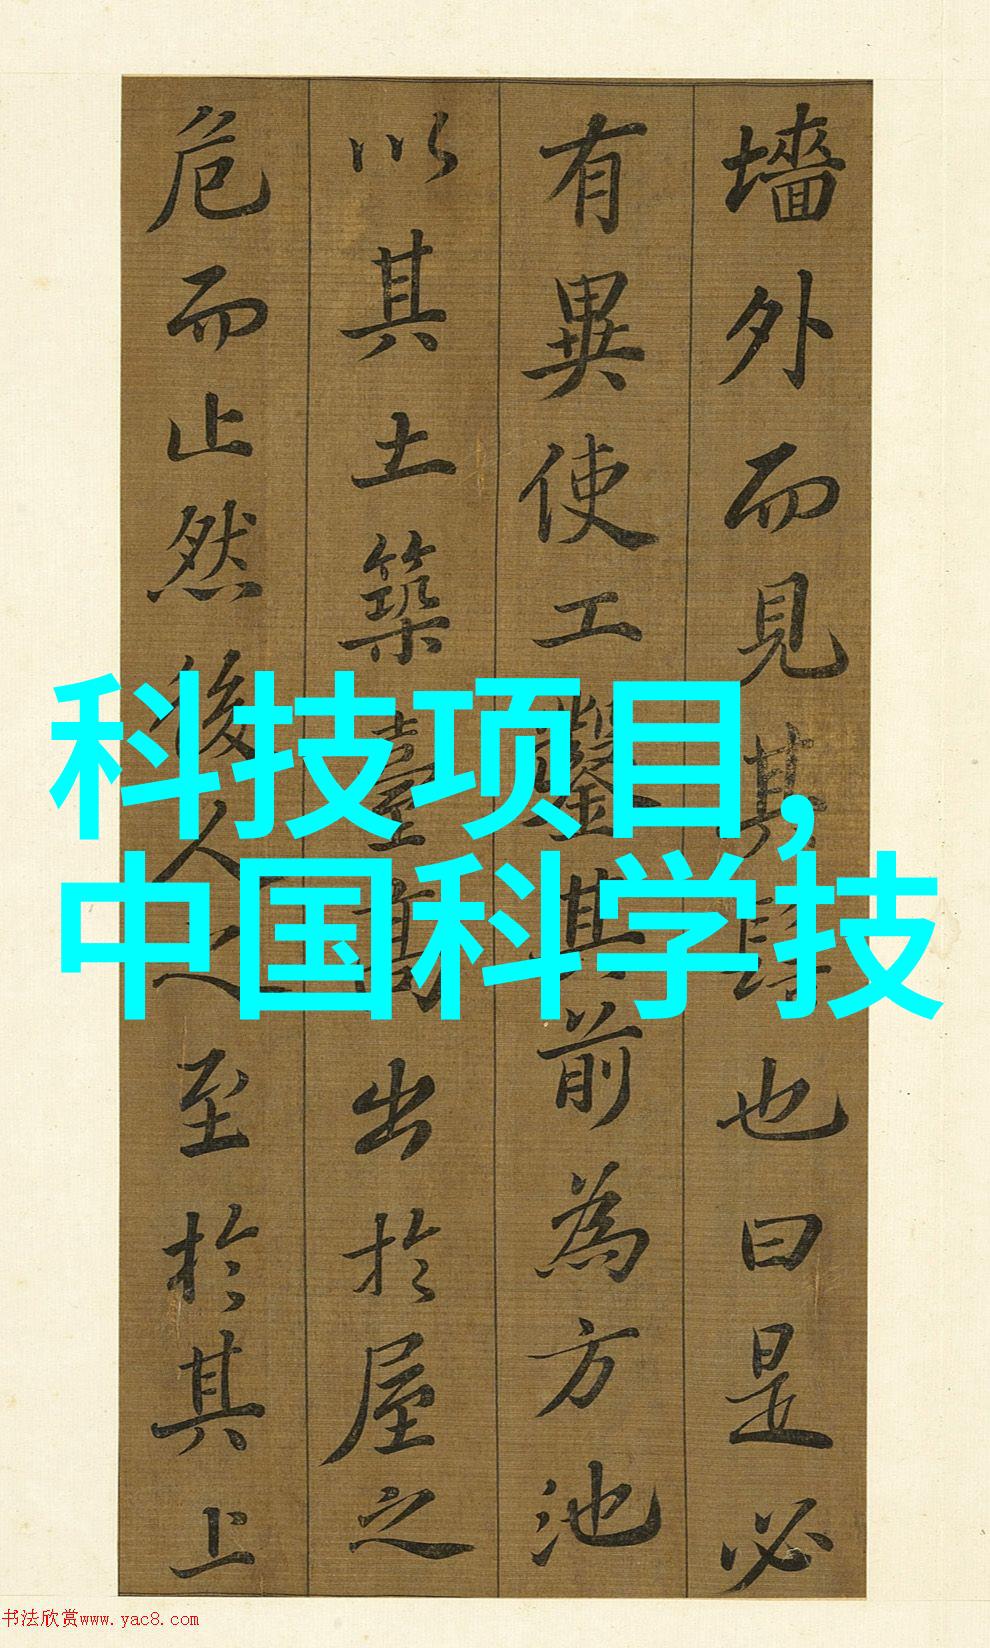 墻外而見其髻也曰是必
有異使工鑿其前為方池
以其土築臺高出於屋之
危而止然後人之至於其上
科技项目,
中国科学技
书法欣赏www.yac8.com